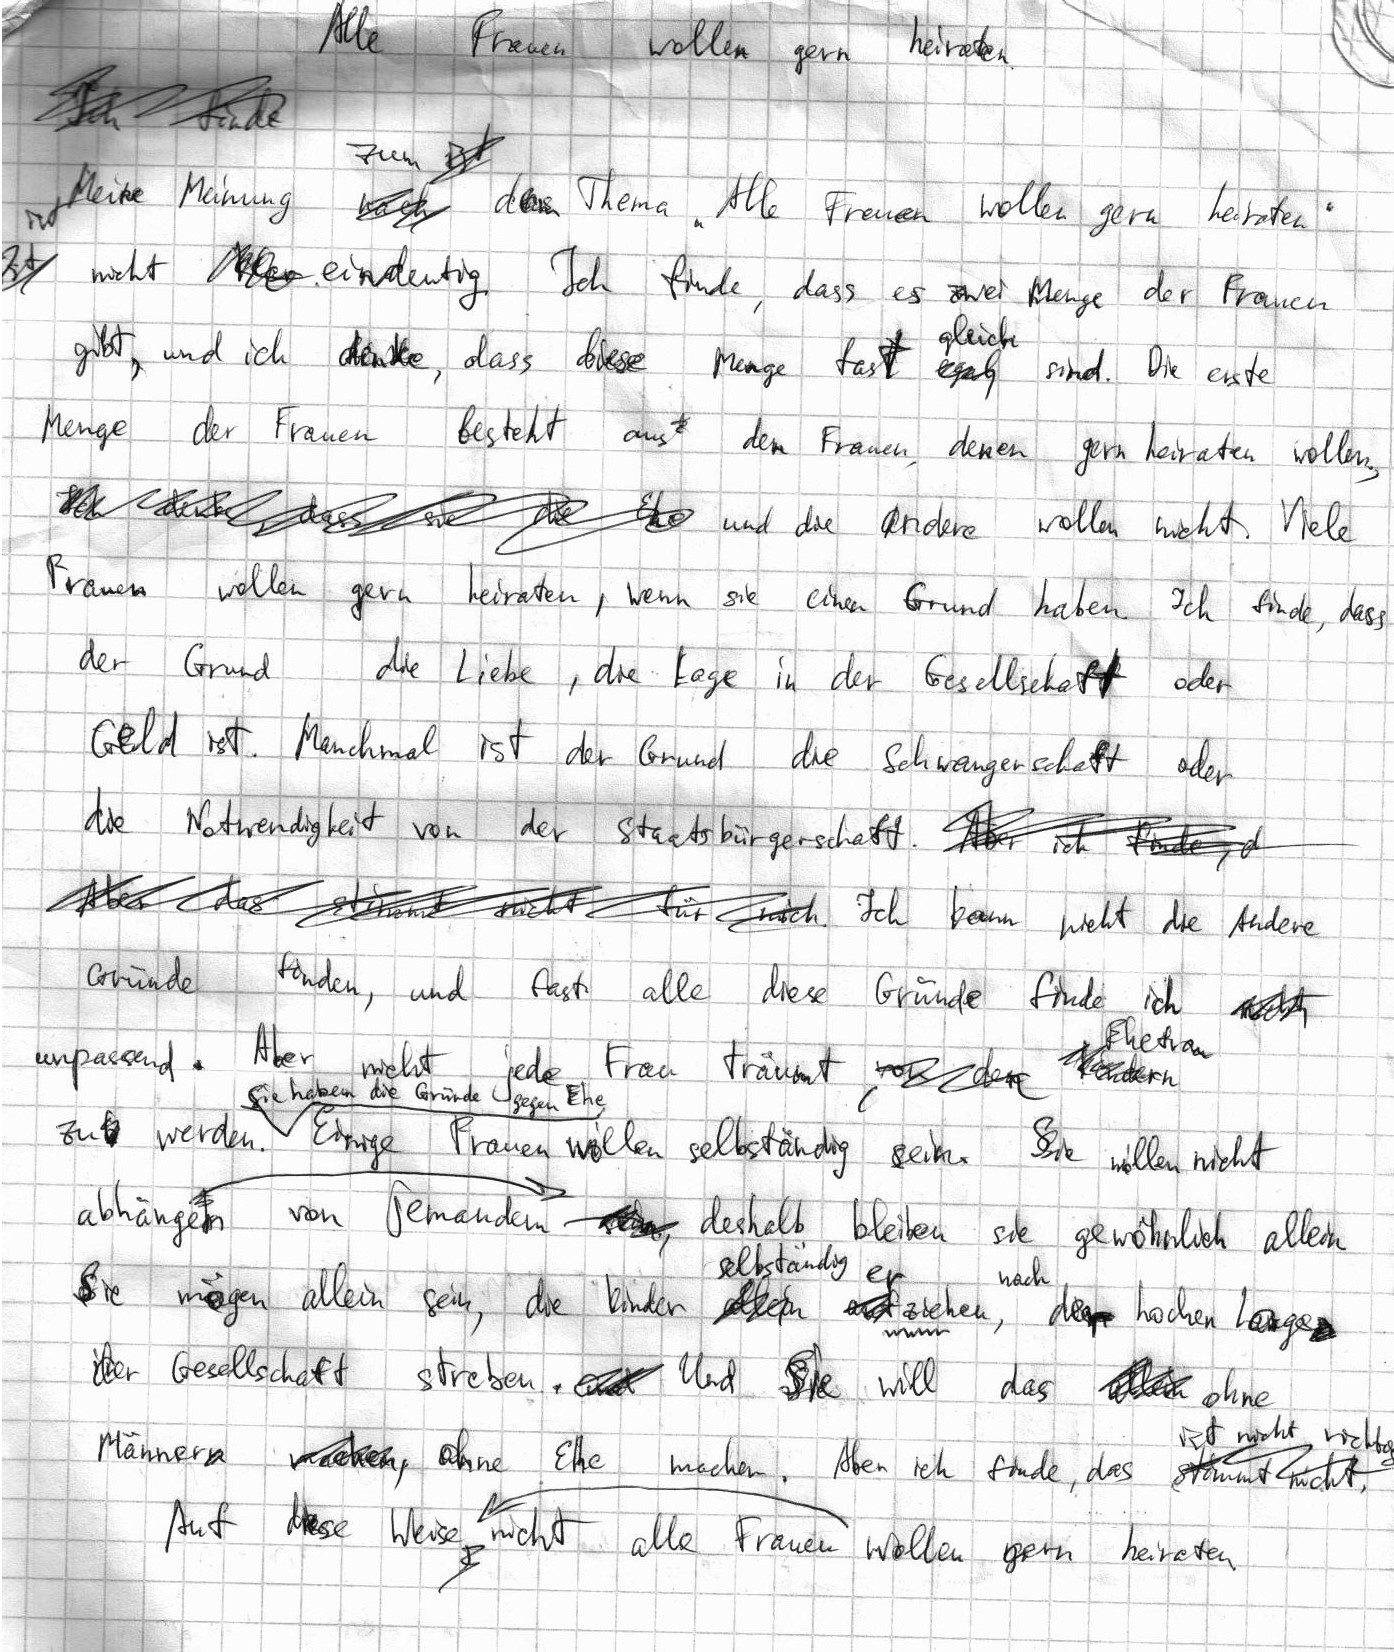 Alle Frauen wollen gern heiraten.
Ich finde
zum
Meine Meinung nach dem Thema „Alle Frauen wollen gern heiraten"
ist nicht eindeutig. Ich finde, dass es zwei Menge der Frauen
gleich
gibt, und ich denke, dass diese Menge fast egal sind. Die erste
Menge der Frauen besteht aus den Frauen, denen gern heiraten wollen,
Ich denke, dass sie die Ehe und die andere wollen nicht. Viele
Frauen wollen gern heiraten, wenn sie einen Grund haben. Ich finde, dass
der Grund die Liebe, die Lage in der Gesellschaft oder
Geld ist. Manchmal ist der Grund die Schwangerschaft oder
die Notwendigkeit von der Staatsbürgerschaft. Aber ich finde, d
Aber das stimmt nicht für mich. Ich kann nicht die Andere
Gründe finden, und fast alle diese Gründe finde ich nicht
Ehefrau
unpassend. Aber nicht jede Frau träumt von den Kindern
sie haben die Gründe gegen Ehe,
zu werden. Einige Frauen wollen selbständig sein. Sie wollen nicht
abhängen von Jemandem sein, deshalb bleiben sie gewöhnlich allein
selbständig er nach
Sie mögen allein sein, die Kinder allein aufziehen, der hochen Lage
in der Gesellschaft streben. und Und Sie will das allein ohne
ist nicht richtig
Männern machen, ohne Ehe machen. Aber ich finde, das stimmt nicht.
Auf diese Weise nicht alle Frauen wollen gern heiraten